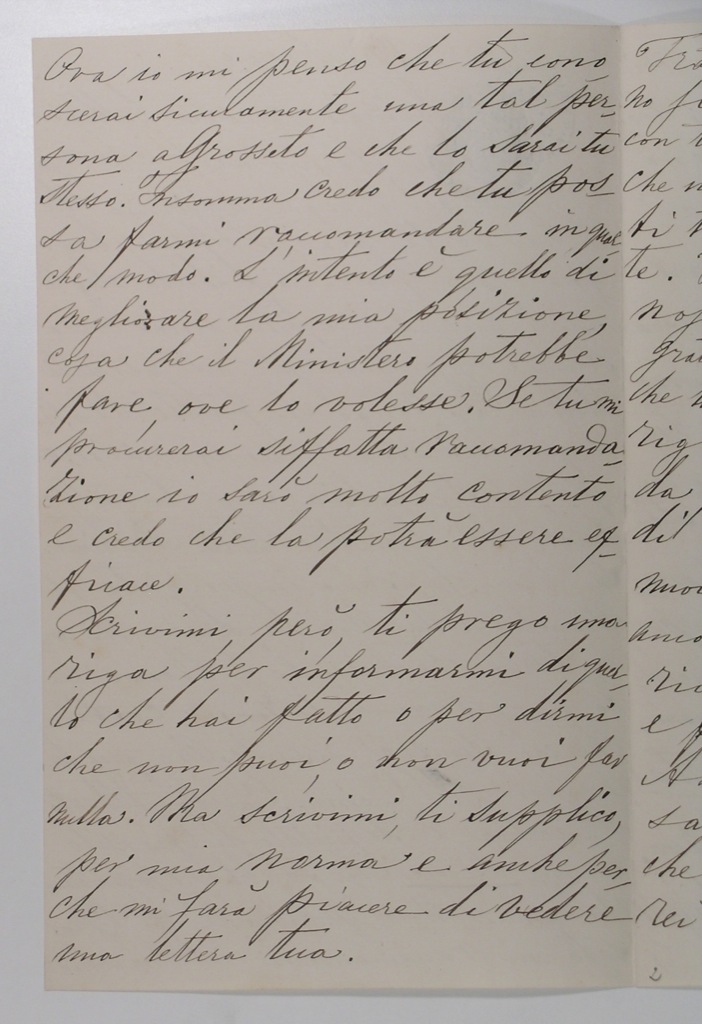 Ora io mi penso che tu cono
scerai sicuramente una tal per-
sona a Grosseto e che lo sarai tu
stesso. Insomma credo che tu pos-
sa farmi raccomandare in qual
che modo. L'intento è quello di
megliorare la mia posizione,
cosa che il Ministero potrebbe
fare, ove lo volesse. Se tu mi
procurerai siffatta raccomanda-
zione io sarò molto contento
e credo che la potrà essere ef-
ficace.
Scrivimi, però, ti prego una
riga per informarmi di quel-
lo che hai fatto o per dirmi
che non puoi, o non vuoi far
nulla. Ma scrivimi, ti supplico,
per mia norma e anche per-
che mi farà piacere di vedere
una lettera tua.
no
con
che
te.
che
rig
da
di
e
sa
che
rei
2